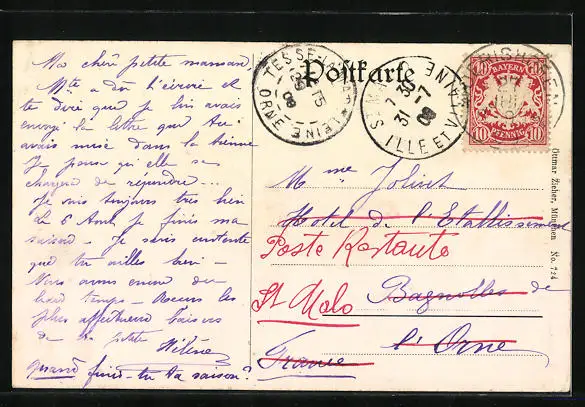 Ma chère petite maman,
Mte a dû t'écrire et
te dire que je lui avais
envoyé la lettre que tu
avais mise dans la tienne
Je pense qu'elle se
chargera de répondre...
Je suis toujours très bien
Le 6 Août je finis ma
saison - Je suis contente
que tu ailles bien -
beau temps - Recois les
plus affectueux baisers
de ta petite
Hélène
quand finis-tu ta saison?
Postkarte
TESSÉ-LA-MADELEINE
ORNE
08
ST MALO
ILLE ET VILAINE
7 30
31 -7
08
BAYERN
10 10
PFENNIG
Mme Jolivet
Hotel de l'Etablissement
Poste Restante
St Malo
Bagnolles de
l'Orne
France
Ottmar Zieher, München No. 724